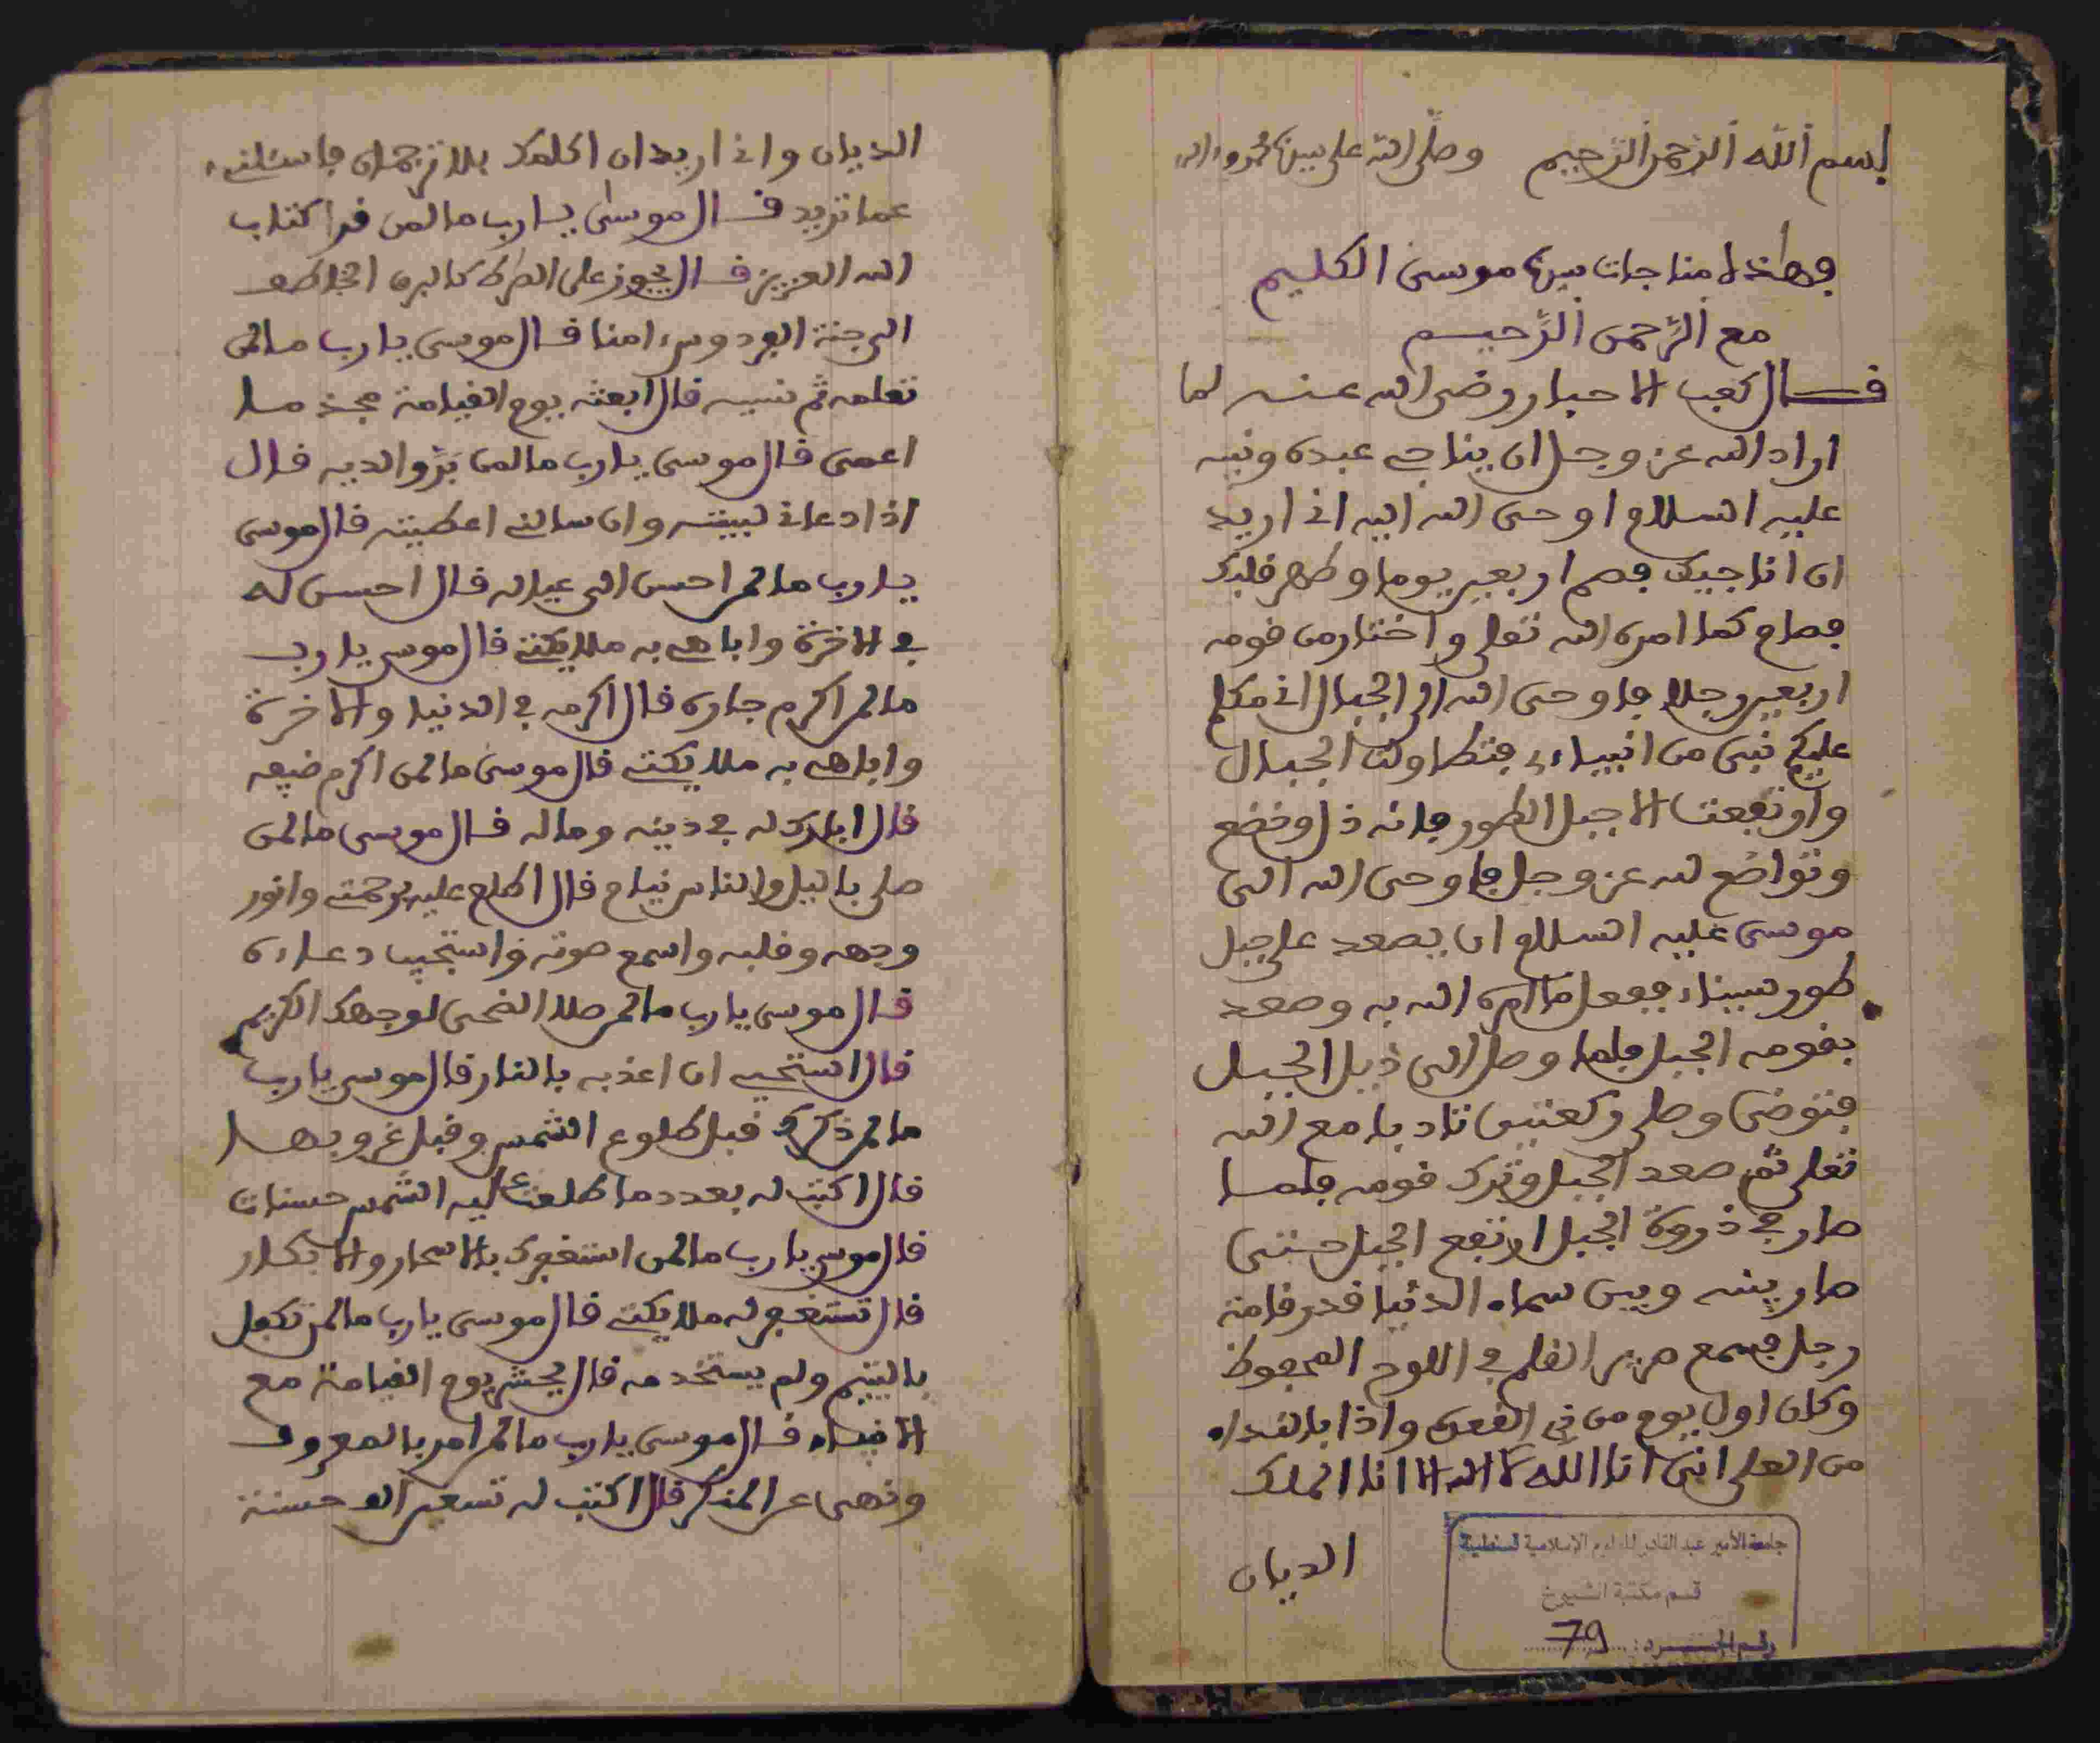 بسم الله الرحمن الرحيم وصلى الله على نبينا محمد وءاله
فهاذه مناجات نبينا موسى الكليم
مع الرحمن الرحيم
قال كعب الاحبار رضى الله عنه لما
اراد الله عز وجل ان يناجي عبده ونبيه
عليه السلام اوحى الله اليه اني اريد
ان اناجيك فصم اربعين يوما وطهر قلبك
فصام كما امره الله تعلى واختار من قومه
اربعين رجلا فاوحى الله الى الجبال اني مكلم
عليكم نبى من انبياءي فتطاولت الجبال
وارتفعت الا جبل الطور فانه ذل وخضع
وتواضع لله عز وجل فاوحى الله الى
موسى عليه السلام ان يصعد على جبل
طور سيناء ففعل ما امره الله به وصعد
بقومه الجبل فلما وصل الى ذيل الجبل
فتوضى وصلى ركعتين تادبا مع الله
تعلى ثم صعد الجبل وترك قومه فلما
صار في ذروة الجبل ارتفع الجبل حتى
صار بينه وبين سماء الدنيا قدر قامة
رجل فسمع صرير القلم في اللوح المحفوظ
وكان اول يوم من ذى القعدة واذا بالنداء
من العلى اننى انا الله لا اله الا انا الملك
الديان
جامعة الأمير عبد القادر للعلوم الإسلامية قسنطينة
قسم مكتبة الشيوخ
رقم الجرد: 79
الديان واني اريد ان اكلمك بلا ترجمان فاسئلني
عما تريد قال موسى يارب ما لمن قرا كتاب
الله العزيز قال يجوز على الصراط كالبرق الخاطف
الى جنة الفردوس امنا قال موسى يارب مالمن
تعلمه ثم نسيه قال ابعثه يوم القيامة مجذما
اعمى قال موسى يارب مالمن بر والديه قال
اذا دعاني لبيته وان سالني اعطيته قال موسى
يارب مالمن احسن الى عياله قال احسن له
في الاخرة واباهي به ملايكتي قال موسى يارب
مالمن اكرم جاره قال اكرمه في الدنيا والاخرة
واباهي به ملايكتي قال موسى مالمن اكرم ضيفه
قال ابارك له في دينه وماله قال موسى مالمن
صلى باليل والناس نيام قال اطلع عليه برحمتي وانور
وجهه وقلبه واسمع صوته واستجيب دعاءه
قال موسى يارب مالمن صلا الضحى لوجهك الكريم
قال استحيي ان اعذبه بالنار قال موسى يارب
مالمن ذكرك قبل طلوع الشمس وقبل غروبها
قال اكتب له بعدد ما طلعت عليه الشمس حسنات
قال موسى يارب مالمن استغفرك بالاسحار والابكار
قال تستغفر له ملايكتي قال موسى يارب مالمن تكفل
باليتيم ولم يستخدمه قال يحشر يوم القيامة مع
الانبياء قال موسى يارب مالمن امر بالمعروف
ونهى عن المنكر قال اكتب له تسعين الف حسنة